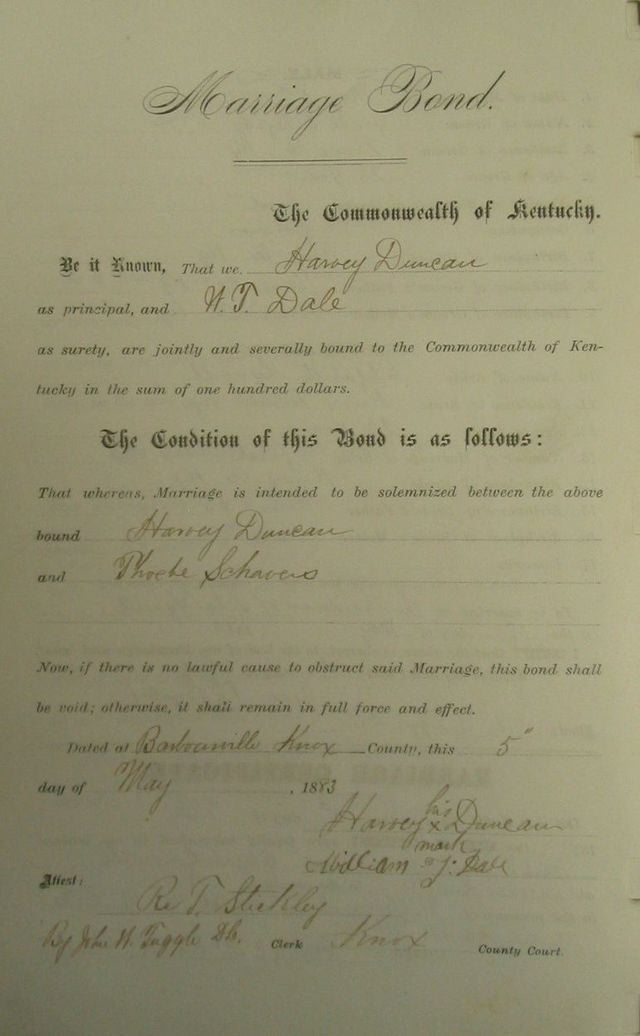 Marriage Bond.
The Commonwealth of Kentucky.
Be it Known, That we Harvey Duncan
as principal, and W. T. Dale
as surety, are jointly and severally bound to the Commonwealth of Ken-
tucky in the sum of one hundred dollars.
The Condition of this Bond is as follows:
That whereas, Marriage is intended to be solemnized between the above
bound Harvey Duncan
and Phoebe Schavers
Now, if there is no lawful cause to obstruct said Marriage, this bond shall
be void; otherwise, it shall remain in full force and effect.
Dated at Barbourville Knox County, this 5"
day of May , 1883
his
Harvey x Duncan
mark
William T. Dale
Attest:
T. Stickley
By John W. Tuggle Clerk Knox County Court.